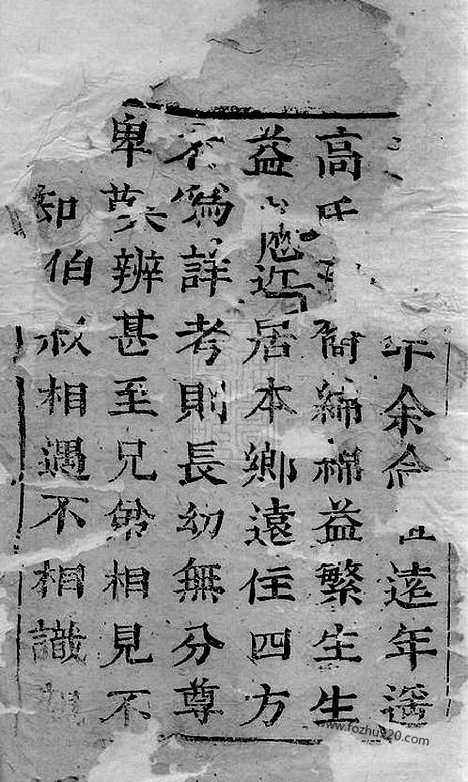 年余世遠年遥
高氏綿綿益繁生生
益近居本鄉遠住四方
不為詳考則長幼無分尊
卑莫辨甚至兄弟相見不
知伯叔相遇不相識
www.fozhu920.com